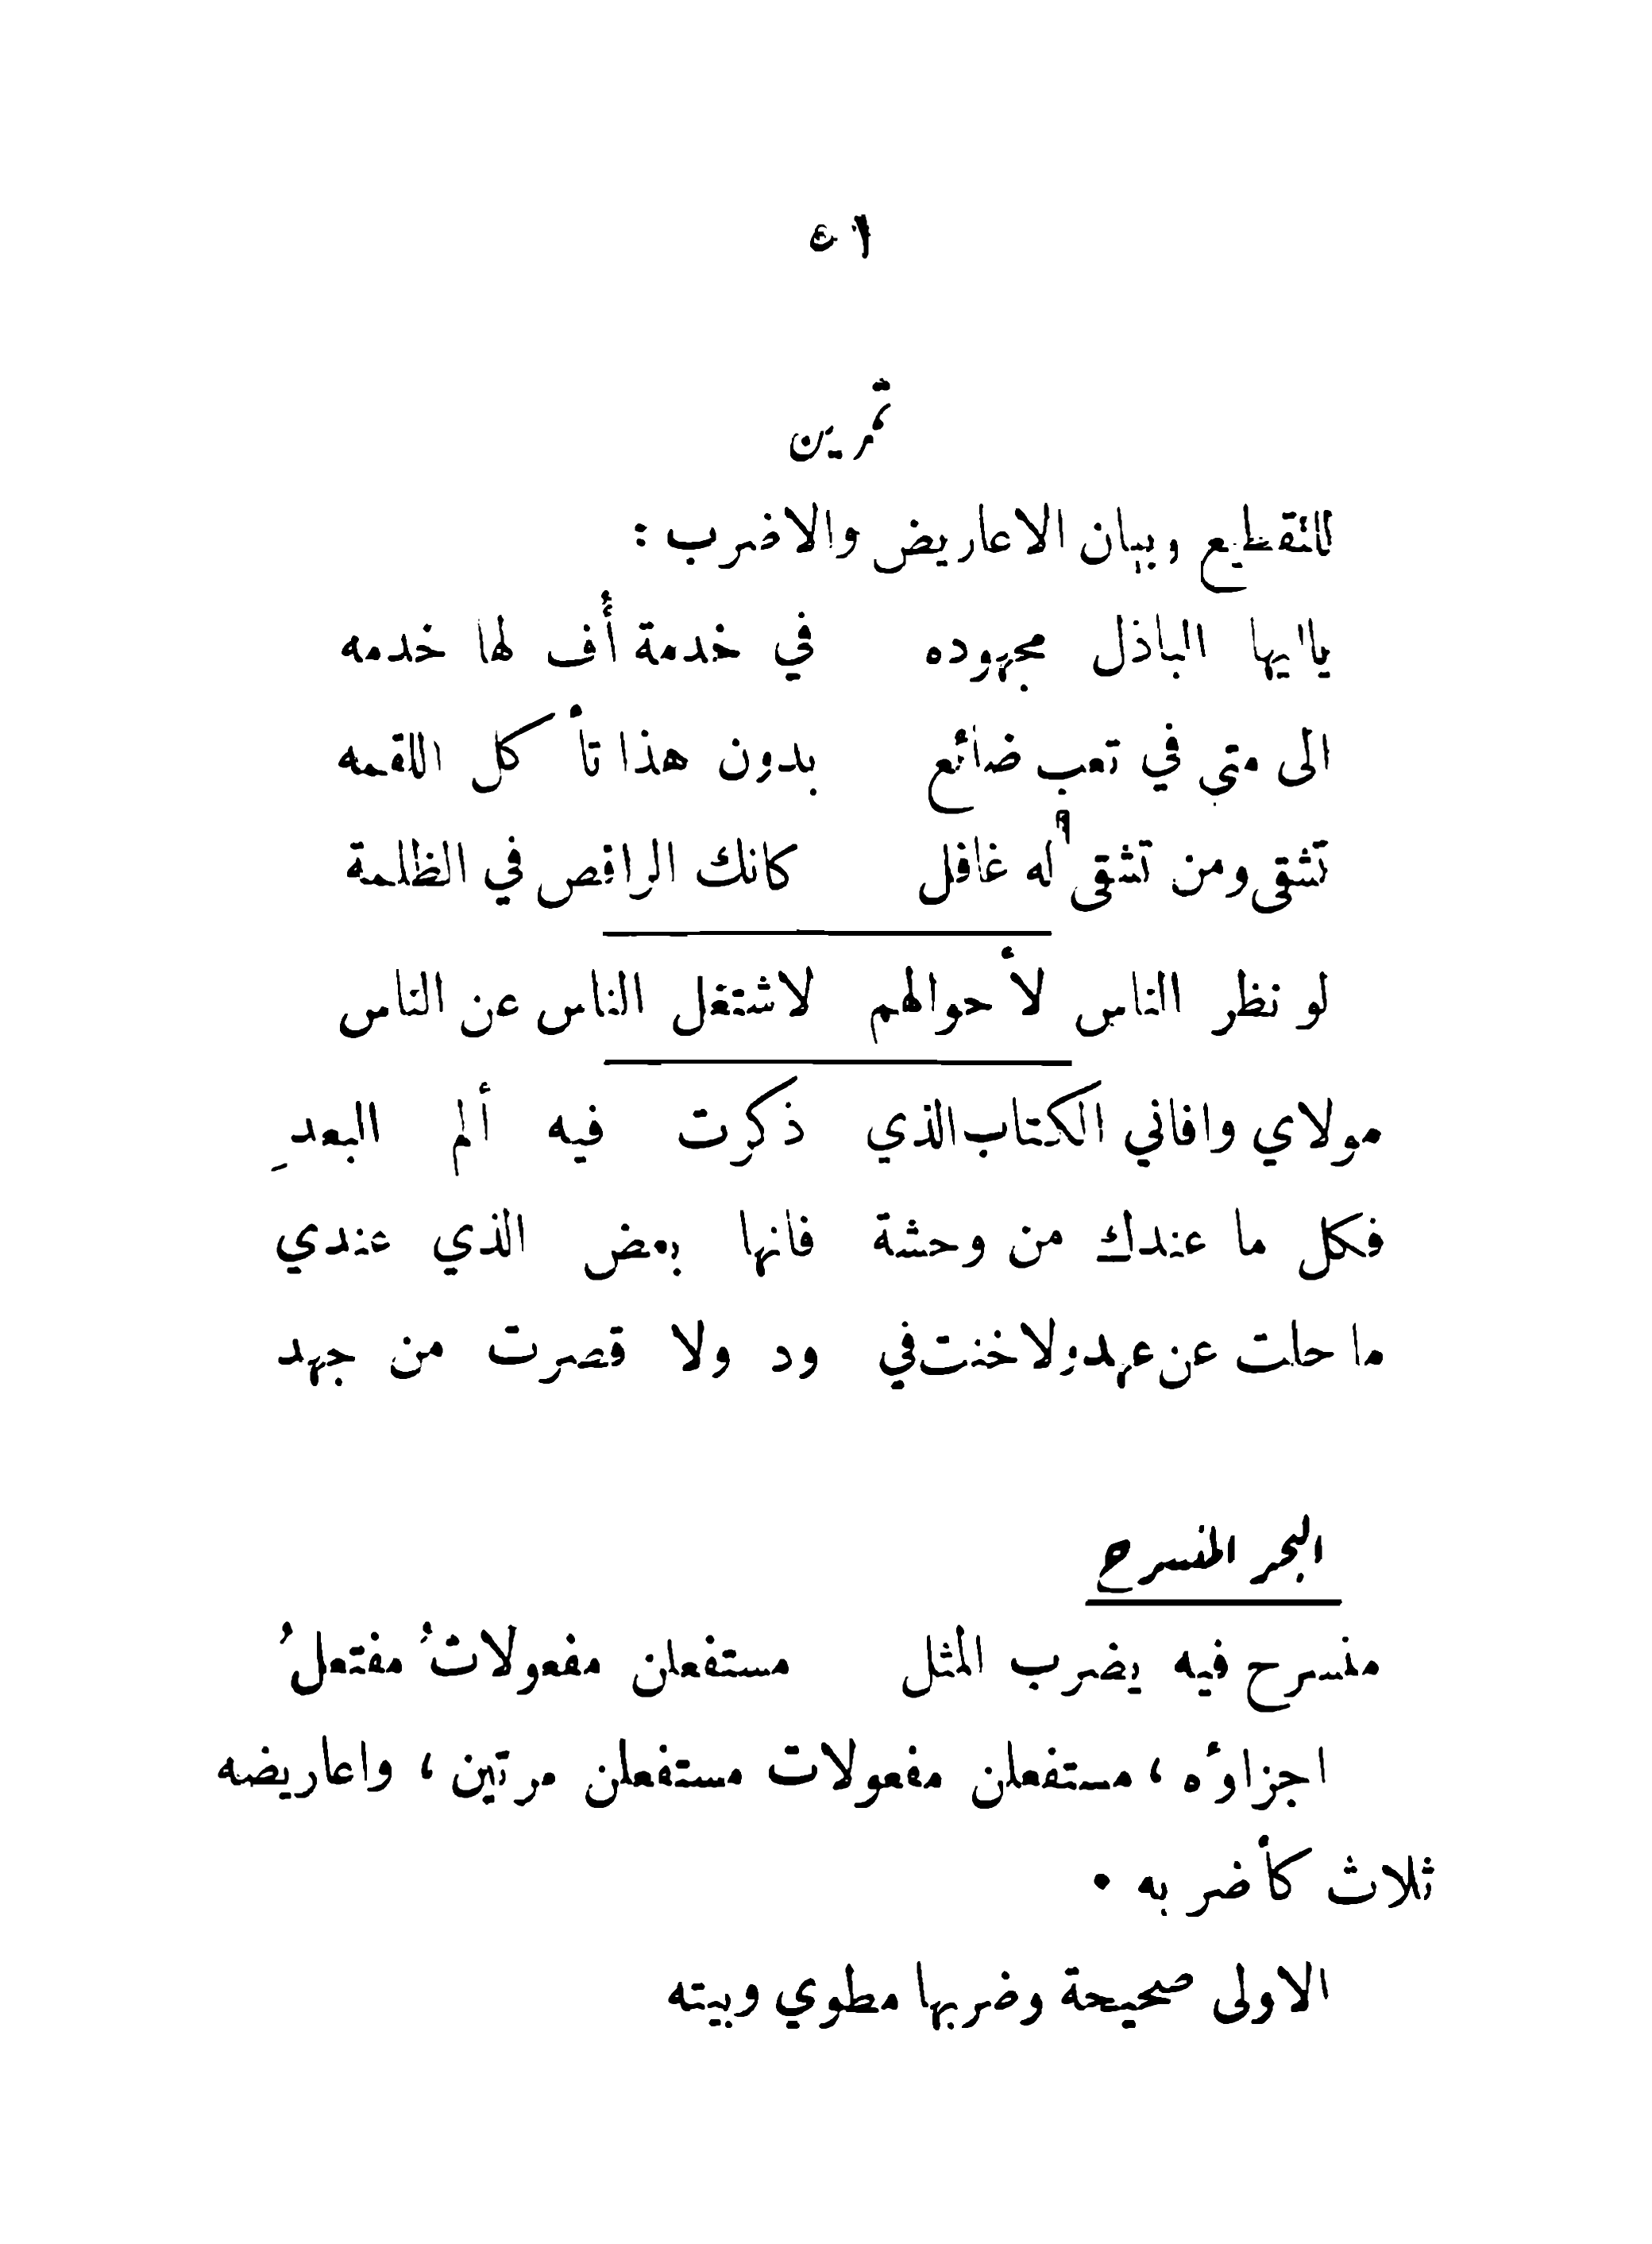 تمرين
للتقطيع وبيان الاعاريض والاضرب :
ياايها الباذل مجهوده في خدمة أُف لها خدمه
الى متى في تعب ضائع بدون هذا تأكل اللقمه
تشقى ومن تشقى له غافل كانك الراقص في الظلمة
لو نظر الناس لأحوالهم لاشتغل الناس عن الناس
مولاي وافاني الكتاب الذي ذكرت فيه ألم البعدِ
فكل ما عندك من وحشة فانها بعض الذي عندي
ما حلت عن عهد ولا خنت في ود ولا قصرت من جهد
البحر المنسرح
منسرح فيه يضرب المثل مستفعلن مفعولاتُ مفتعلُ
اجزاؤه ، مستفعلن مفعولات مستفعلن مرتين ، واعاريضه
ثلاث كأضربه .
الاولى صحيحة وضربها مطوي وبيته